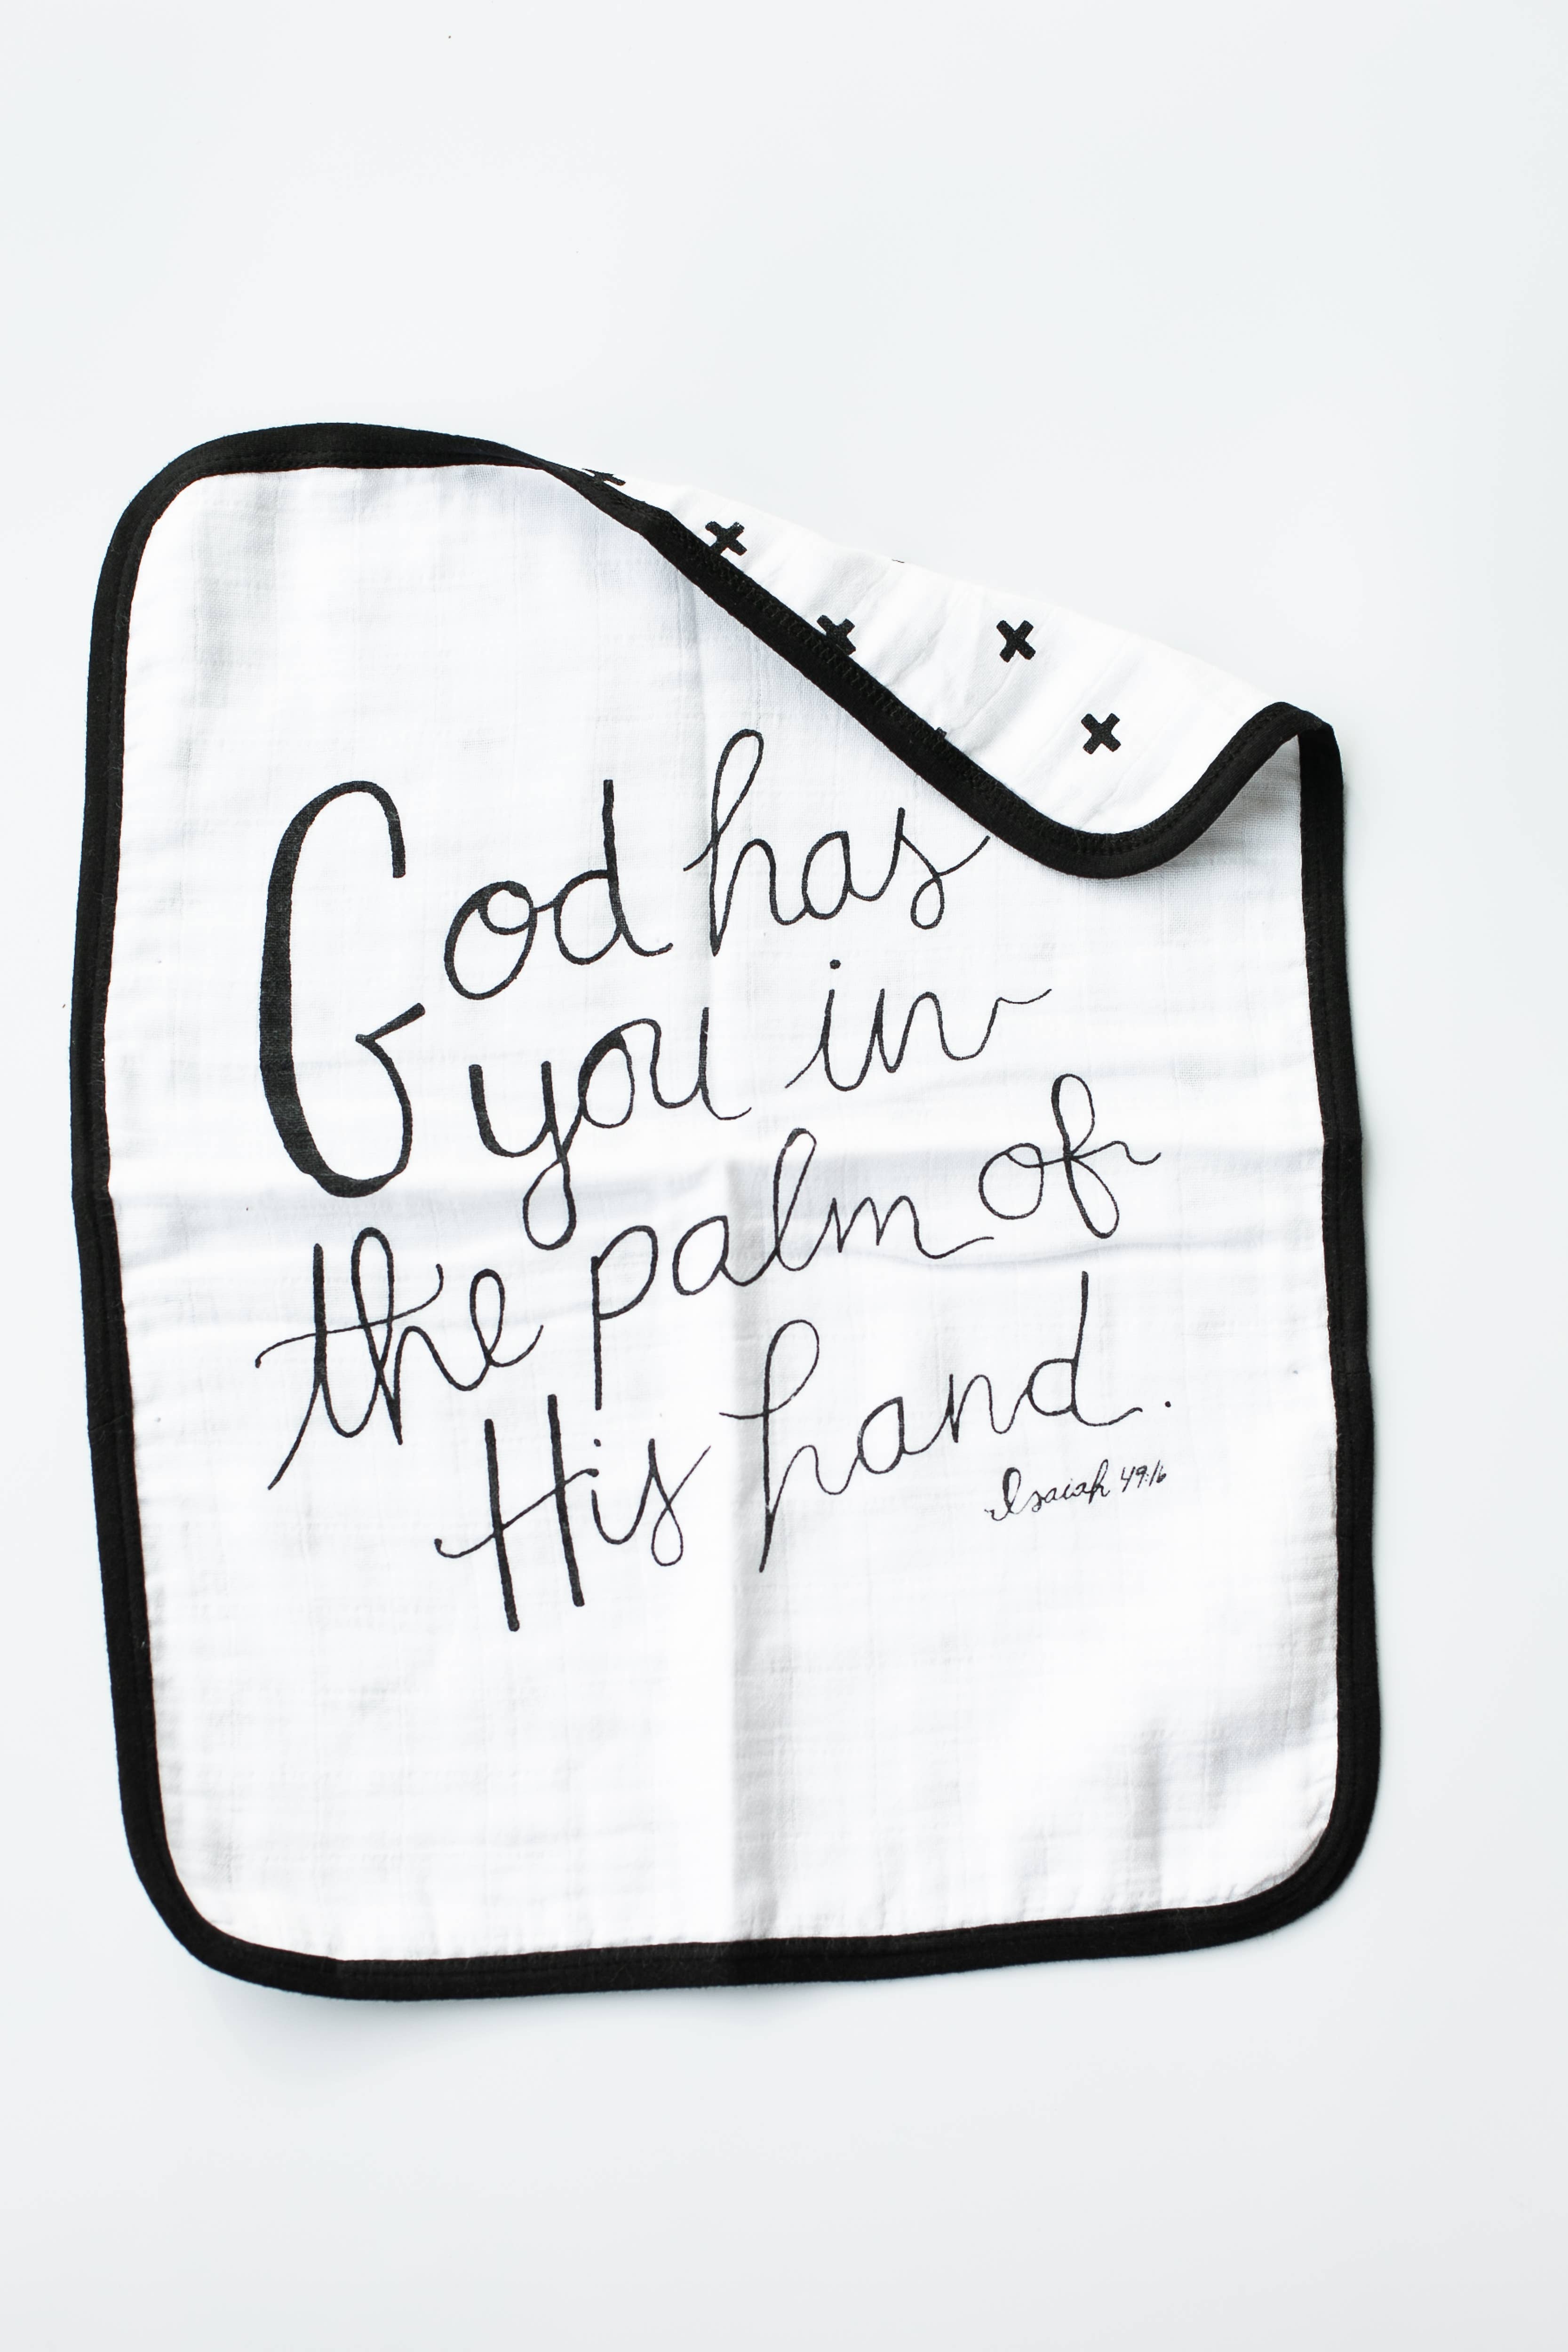 God has
you in
the palm of
His hand.
Isaiah 49:16